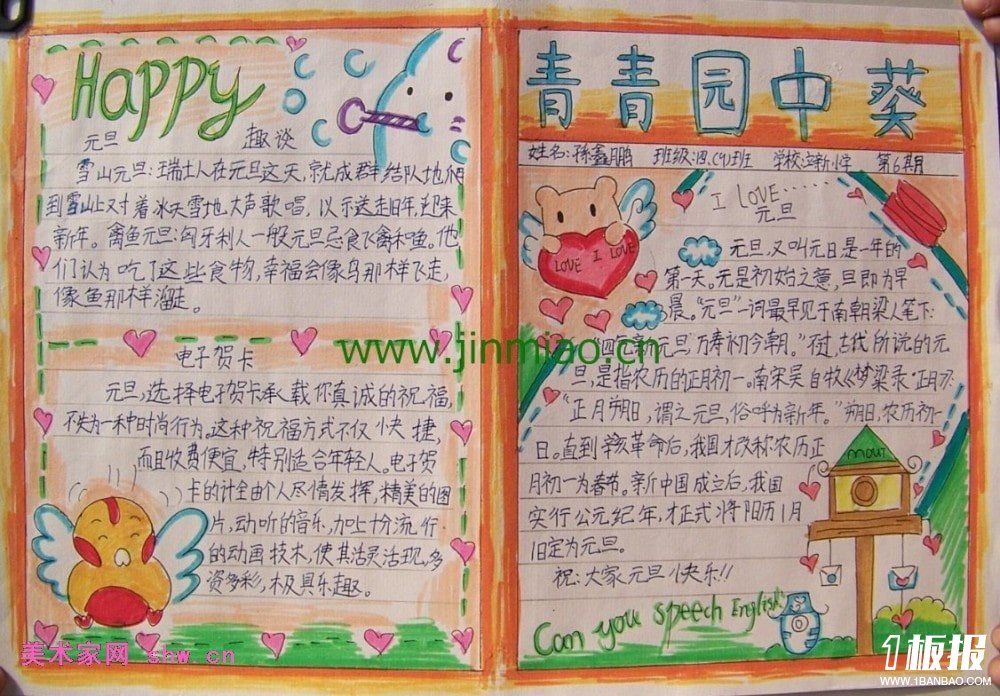 Happy
元旦 趣谈
雪山元旦:瑞士人在元旦这天,就成群结队地们
到雪山上对着冰天雪地大声歌唱,以示送走旧年,迎来
新年。禽鱼元旦:匈牙利人一般元旦忌食飞禽和鱼。他
们认为吃了这些食物,幸福会像鸟那样飞走,
像鱼那样溜走。
电子贺卡
元旦,选择电子贺卡承载你真诚的祝福,
不失为一种时尚行为。这种祝福方式不仅快捷,
而且收费便宜,特别适合年轻人。电子贺
卡的计全由个人尽情发挥,精美的图
片,动听的音乐,加上十分流行
的动画技术,使其活灵活现,多
姿多彩,极具乐趣。
青青园中葵
姓名:孙鑫鹏 班级:四.(4)班 学校:立新小学 第6期
I LOVE······
元旦
LOVE I LOVE
元旦,又叫元日是一年的
第一天。元是初始之意,旦即为早
晨。“元旦”一词最早见于南朝梁人笔下:
“四气新元旦,万寿初今朝。”不过,古代所说的元
旦,是指农历的正月初一。南宋吴自牧《梦梁录·正月》:
“正月朔日,谓之元旦,俗呼为新年。”朔日,农历初一
日。直到辛亥革命后,我国才改称农历正
月初一为春节。新中国成立后,我国
实行公元纪年,才正式将阳历1月
1日定为元旦。
祝:大家元旦快乐!!
Can you speech English
www.jinmiao.cn
美术家网 shw.cn
1板报
WWW.1BANBAO.COM